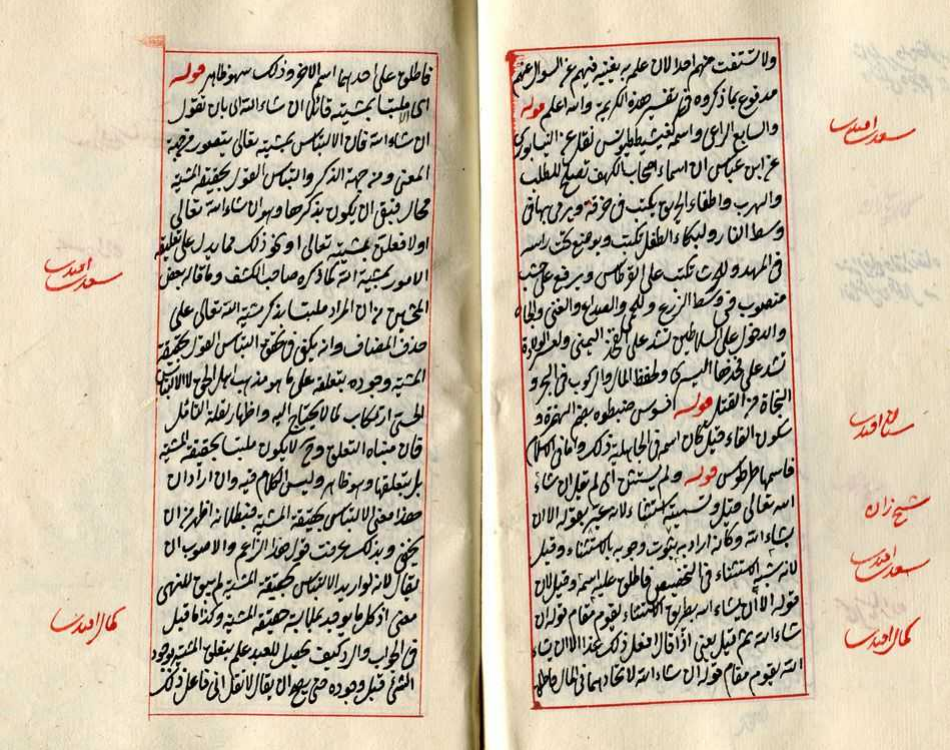 ولا تستفت منهم احدا لان علم به يغنيه فيهم عن السؤال عنهم
مدفوع بما ذكروه في تفسير هذه الكريمة والله اعلم قوله
والسابع الراعي واسمه نقلا عن النيسابوري
عن ابن عباس ان اسماء اصحاب الكهف تصلح للطلب
والهرب واطفاء الحريق يكتب في خرقة ويرمى بها في
وسط النار ولبكاء الطفل تكتب وتوضع تحت راسه
في المهد وللحرث تكتب على القرطاس ويرفع على خشب
منصوب في وسط الزرع وللحمى والصداع والغنى والجاه
والدخول على السلاطين تشد على الفخذ اليمنى ولعسر الولادة
تشد على فخذها اليسرى ولحفظ المال والركوب في البحر و
النجاة من القتل قوله افسوس ضبطوه بضم الهمزة و
سكون الفاء قيل كان اسمه في الجاهلية ذلك واما في الاسلام
فاسمها طرطوس قوله ولم يستثن اي لم يقل ان شاء
الله تعالى قيل وتسميته استثناء لانه عبر بقوله الا ان
يشاء الله وكانه اراد به ثبوت وجوبه بالاستثناء وقيل
لانه شبه الاستثناء في التخصيص فاطلق عليه اسمه وقيل لان
قوله الا ان يشاء الله بطريق الاستثناء يقوم مقام قوله ان
شاء الله ثم قيل يعني اذا قال افعل ذلك غدا الا ان يشاء
الله يقوم مقام قوله ان شاء الله لاتحادهما في المال فاطلق
سعدي افندي
سنان افندي
شيخ زاده
سعدي افندي
كمال افندي
فاطلق على احدهما اسم الاخر وذلك سهو ظاهر قوله
اي الا ملتبسا بمشيته قائلا ان شاء الله اي بان تقول
ان شاء الله فان الالتباس بمشيته تعالى يتصور من جهة
المعنى ومن جهة الذكر والتباس القول بحقيقة المشية
محال فبقي ان يكون بذكرها وهو ان شاء الله تعالى
اولا فعلن بمشيته تعالى او نحو ذلك مما يدل على تعليق
الامور بمشية الله كما ذكره صاحب الكشف وما قاله بعض
المحشين من ان المراد ملتبسا بذكر مشية الله تعالى على
حذف المضاف وانه يكفي في تحقق التباس القول بحقيقة
المشية وجوده بتعلقه على ما هو مذهب اهل الحق لا الالتباس
الحسي ارتكاب لما لا يحتاج اليه واظهار لغفلة القائل
فان مبناه التعلق وح لا يكون ملتبسا بحقيقة المشية
بل بتعلقها وهو ظاهر وليس الكلام فيه وان اراد ان
هذا معنى الالتباس بحقيقة المشية فبطلانه اظهر من ان
يخفى وبذلك عرفت قول هذا الزاعم والاصوب ان
يقال لانه لو اريد الالتباس بحقيقة المشية لم يبق للنهي
معنى اذ كل ما يوجد بملابسة حقيقة المشية وكذا ما قيل
في الجواب والرد كيف يحصل للعبد علم بتعلق المشية بوجود
الشئ قبل وجوده حتى يصح ان يقال لا تقل اني فاعل ذلك
سعدي افندي
كمال افندي